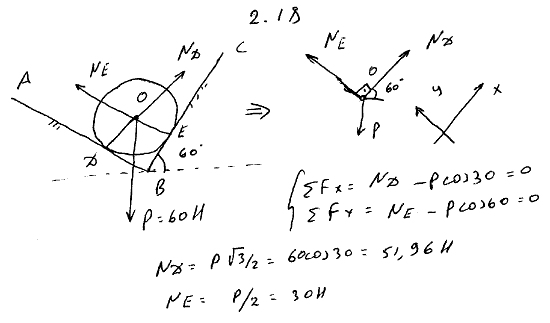 2.18
A
N_E
N_D
C
O
D
E
60°
B
P=60H
⇒
N_E
N_D
O
60°
P
y
x
ΣFx = N_D - Pcos30 = 0
ΣFY = N_E - Pcos60 = 0
N_D = P√3/2 = 60cos30 = 51,96 H
N_E = P/2 = 30H